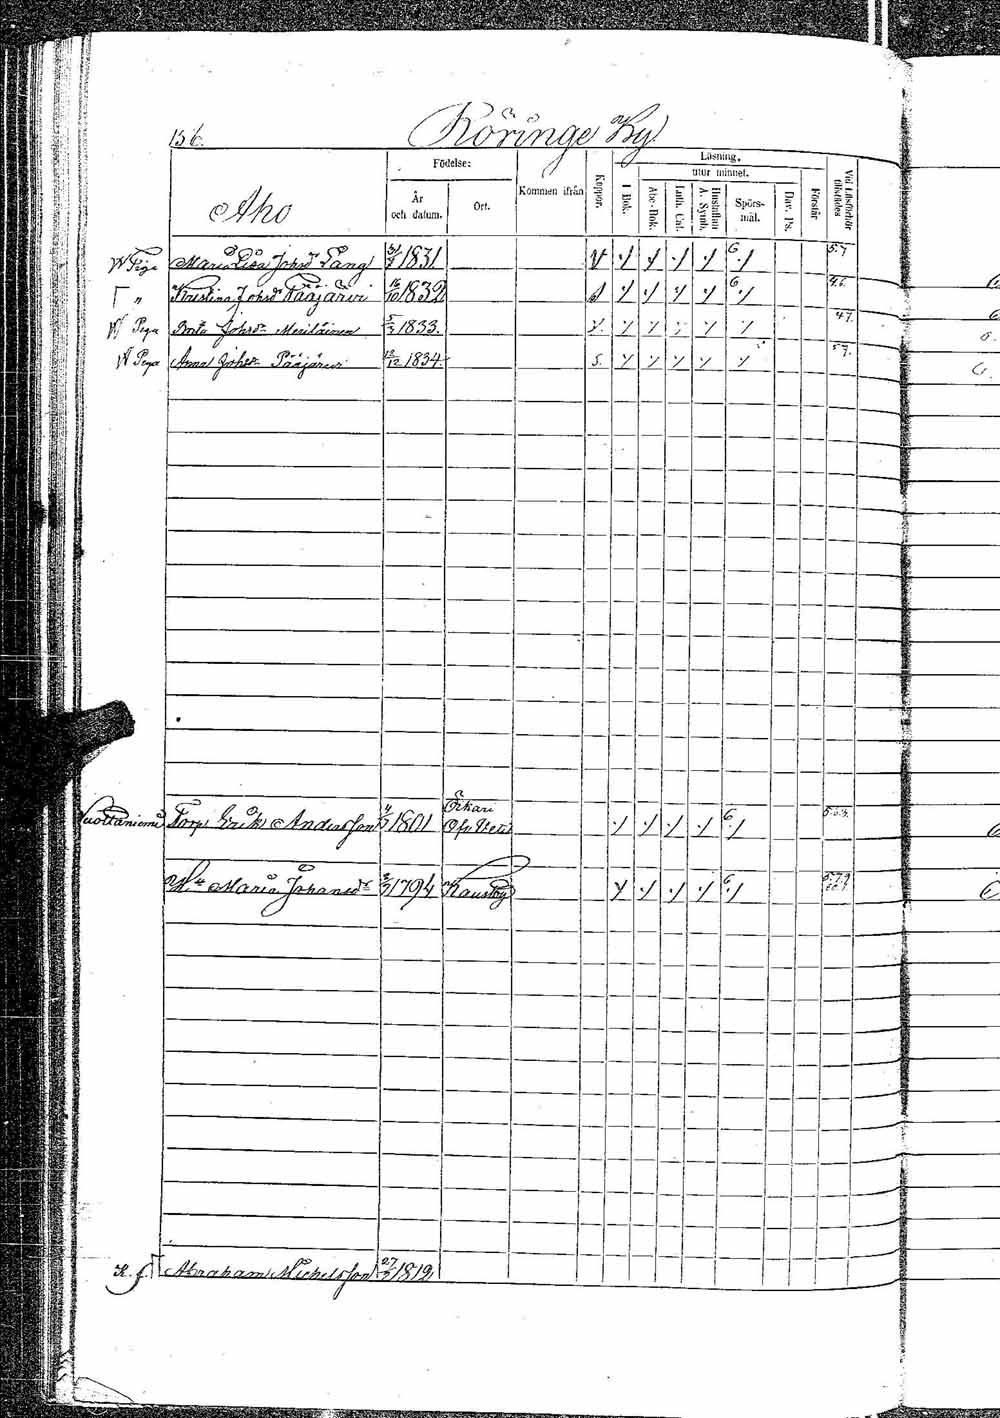 156.
Köringe By
Födelse:
Läsning,
utur minnet.
Aho
År och datum.
Ort.
Kommen ifrån
Koppor.
I Bok.
Abc-Bok.
Luth. Cat.
Hustaflan A. Symb.
Spörs-mål.
Dav. Ps.
Förstår
Vid Läsförhör tillstädes
Piga Maria Lisa Johsdr Lang 31/3 1831. V 6 5.7
" Kristina Johsdr Pääjärvi 16/10 1832 6 4.6.
Piga Johsdr Meriläinen 5/3 1833. 4 7.
Piga Anna Johsdr Pääjärvi 12/12 1834. 5 7.
Vuottaniemi Torp. Erik Andersson 1801 6
Hu Maria Johansdr 1794 Kausby 6
Abraham Michelsson 27/3 1819.